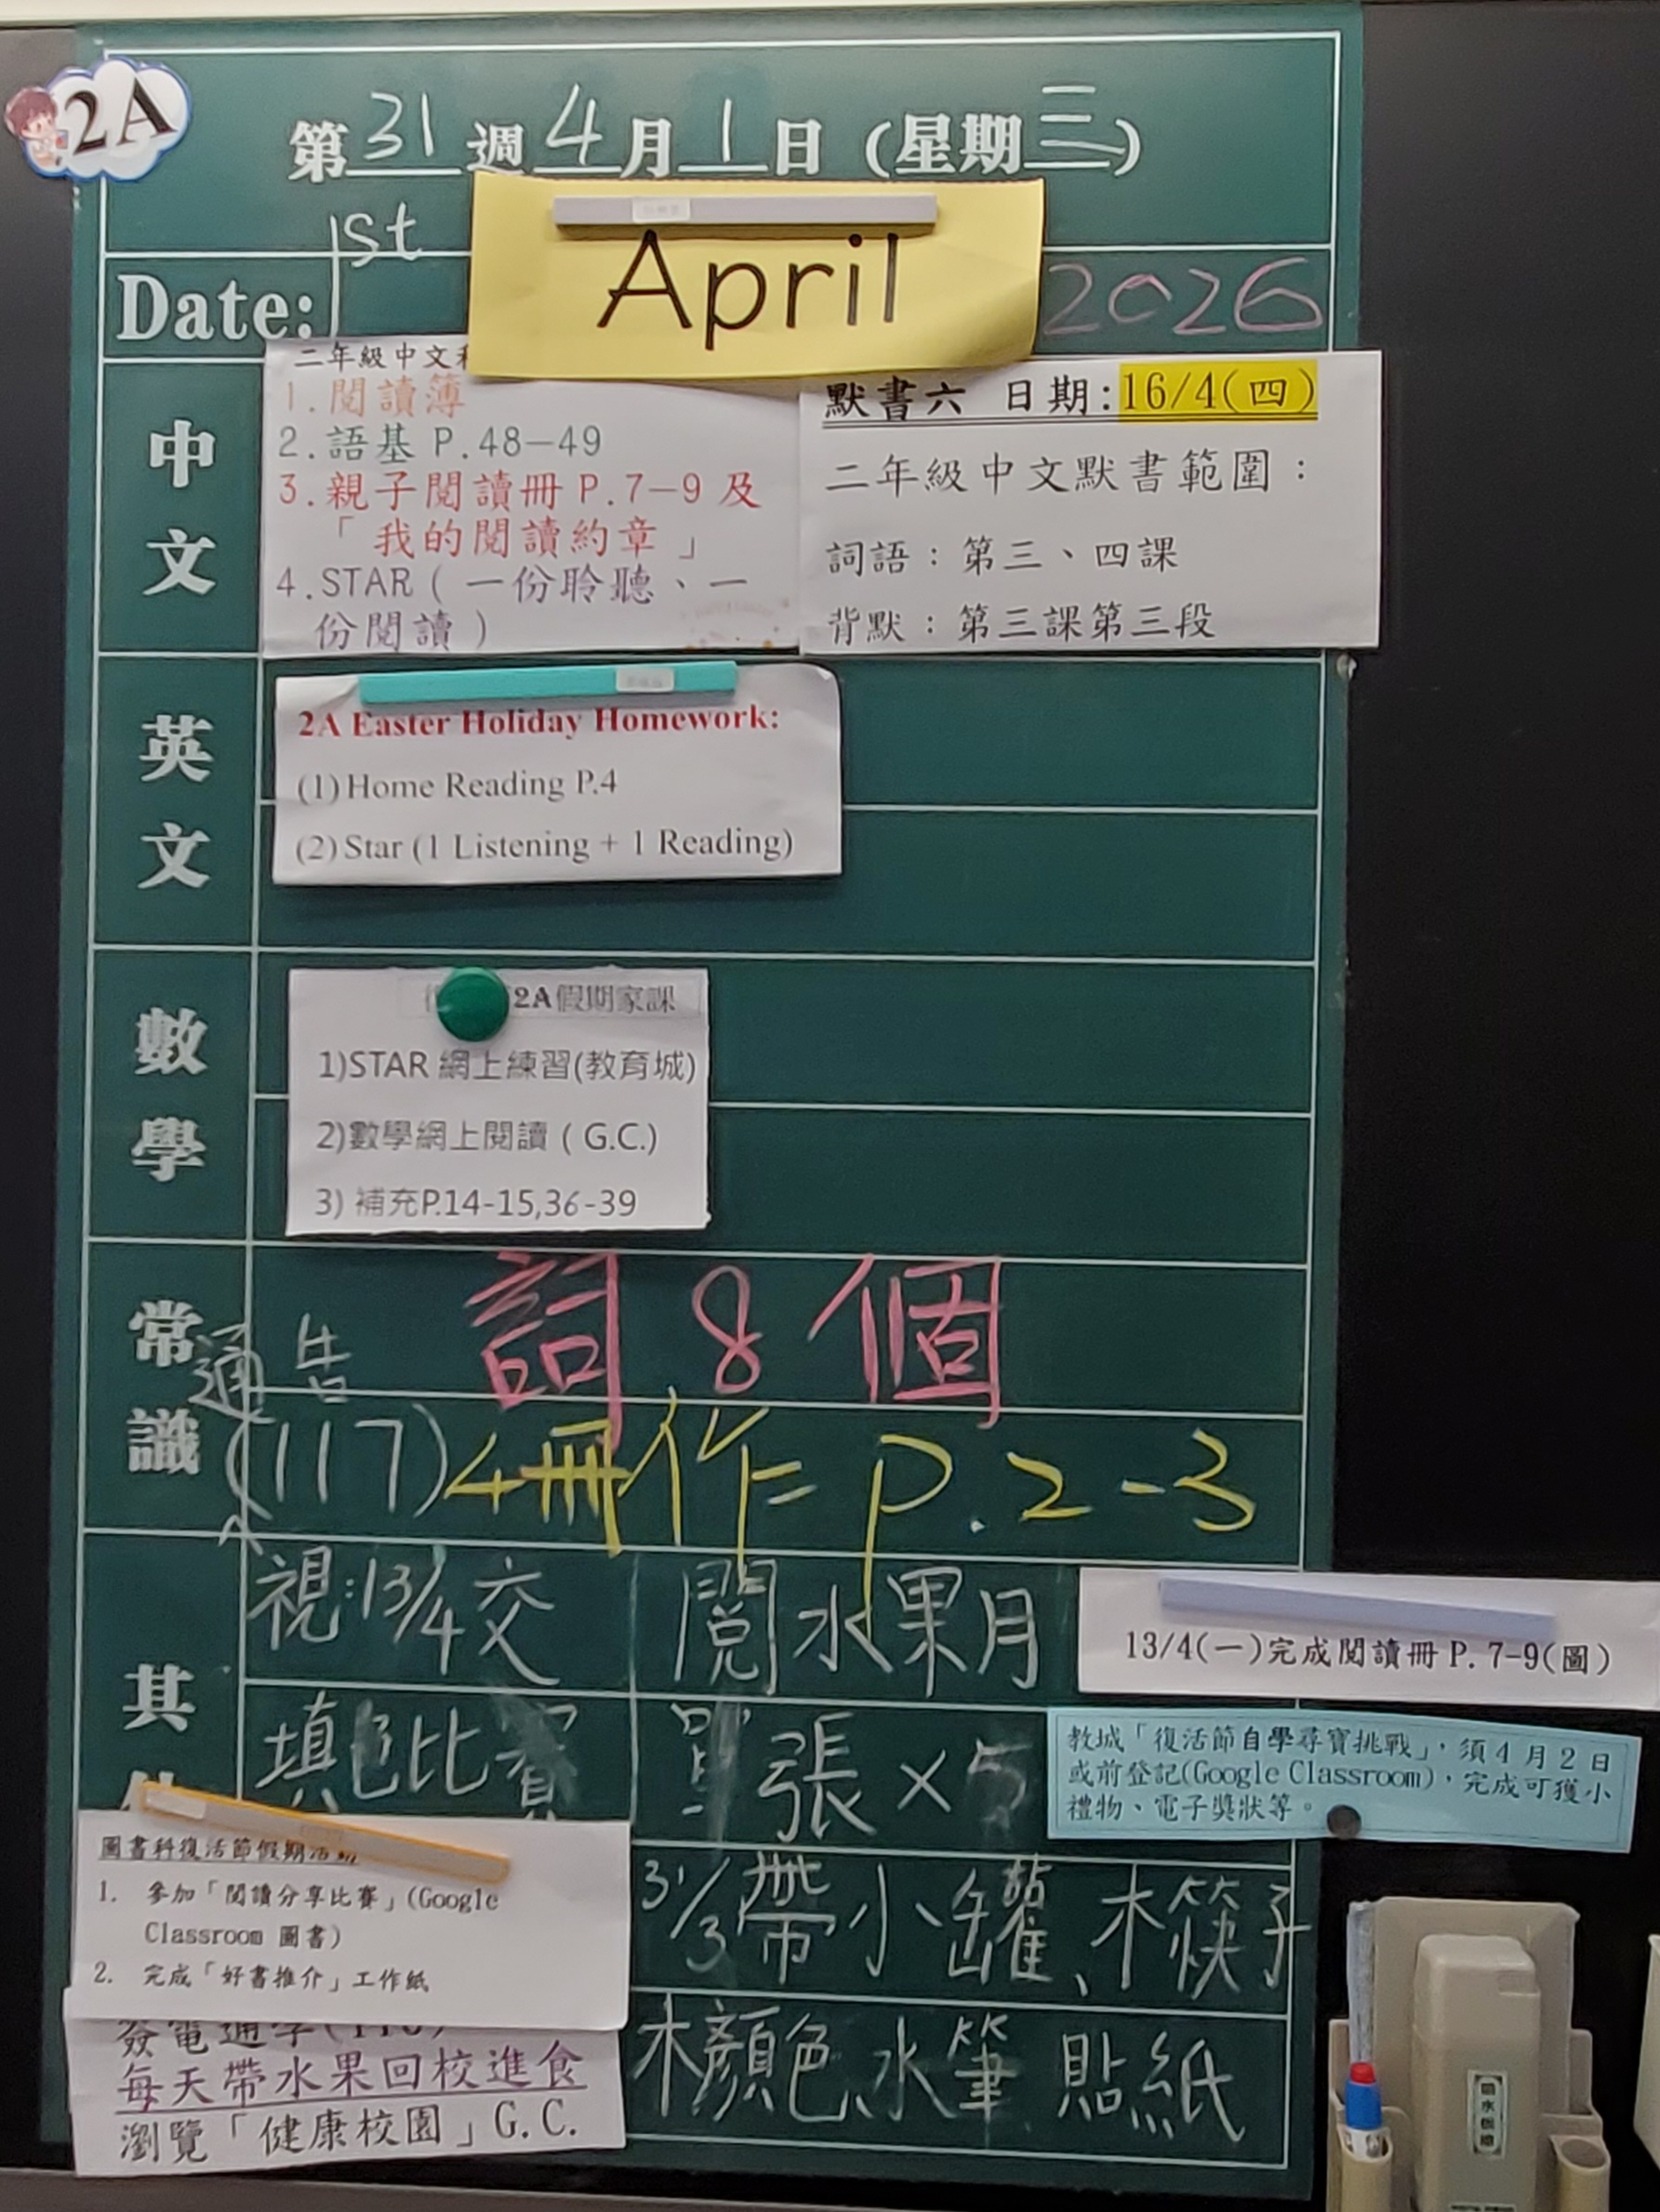 2A
第31週4月1日(星期三)
Date: 1st April 2026
中文
二年級中文
1.閱讀簿
2.語基 P.48-49
3.親子閱讀冊 P.7-9 及
「我的閱讀約章」
4.STAR(一份聆聽、一
份閱讀)
默書六 日期:16/4(四)
二年級中文默書範圍:
詞語:第三、四課
背默:第三課第三段
英文
2A Easter Holiday Homework:
(1) Home Reading P.4
(2) Star (1 Listening + 1 Reading)
數學
2A假期家課
1)STAR 網上練習(教育城)
2)數學網上閱讀(G.C.)
3) 補充P.14-15,36-39
常識
詞8個
通告
(117)
4冊作= P.2-3
其
視:13/4交
閱水果月
13/4(一)完成閱讀冊 P. 7-9(圖)
填色比賽
張×5
教城「復活節自學尋寶挑戰」,須4月2日
或前登記(Google Classroom),完成可獲小
禮物、電子獎狀等。
圖書科復活節假期活動
1. 參加「閱讀分享比賽」(Google
Classroom 圖書)
2. 完成「好書推介」工作紙
31/3帶小罐、木筷子
簽電通學(116)
每天帶水果回校進食
瀏覽「健康校園」G.C.
木顏色、水筆、貼紙